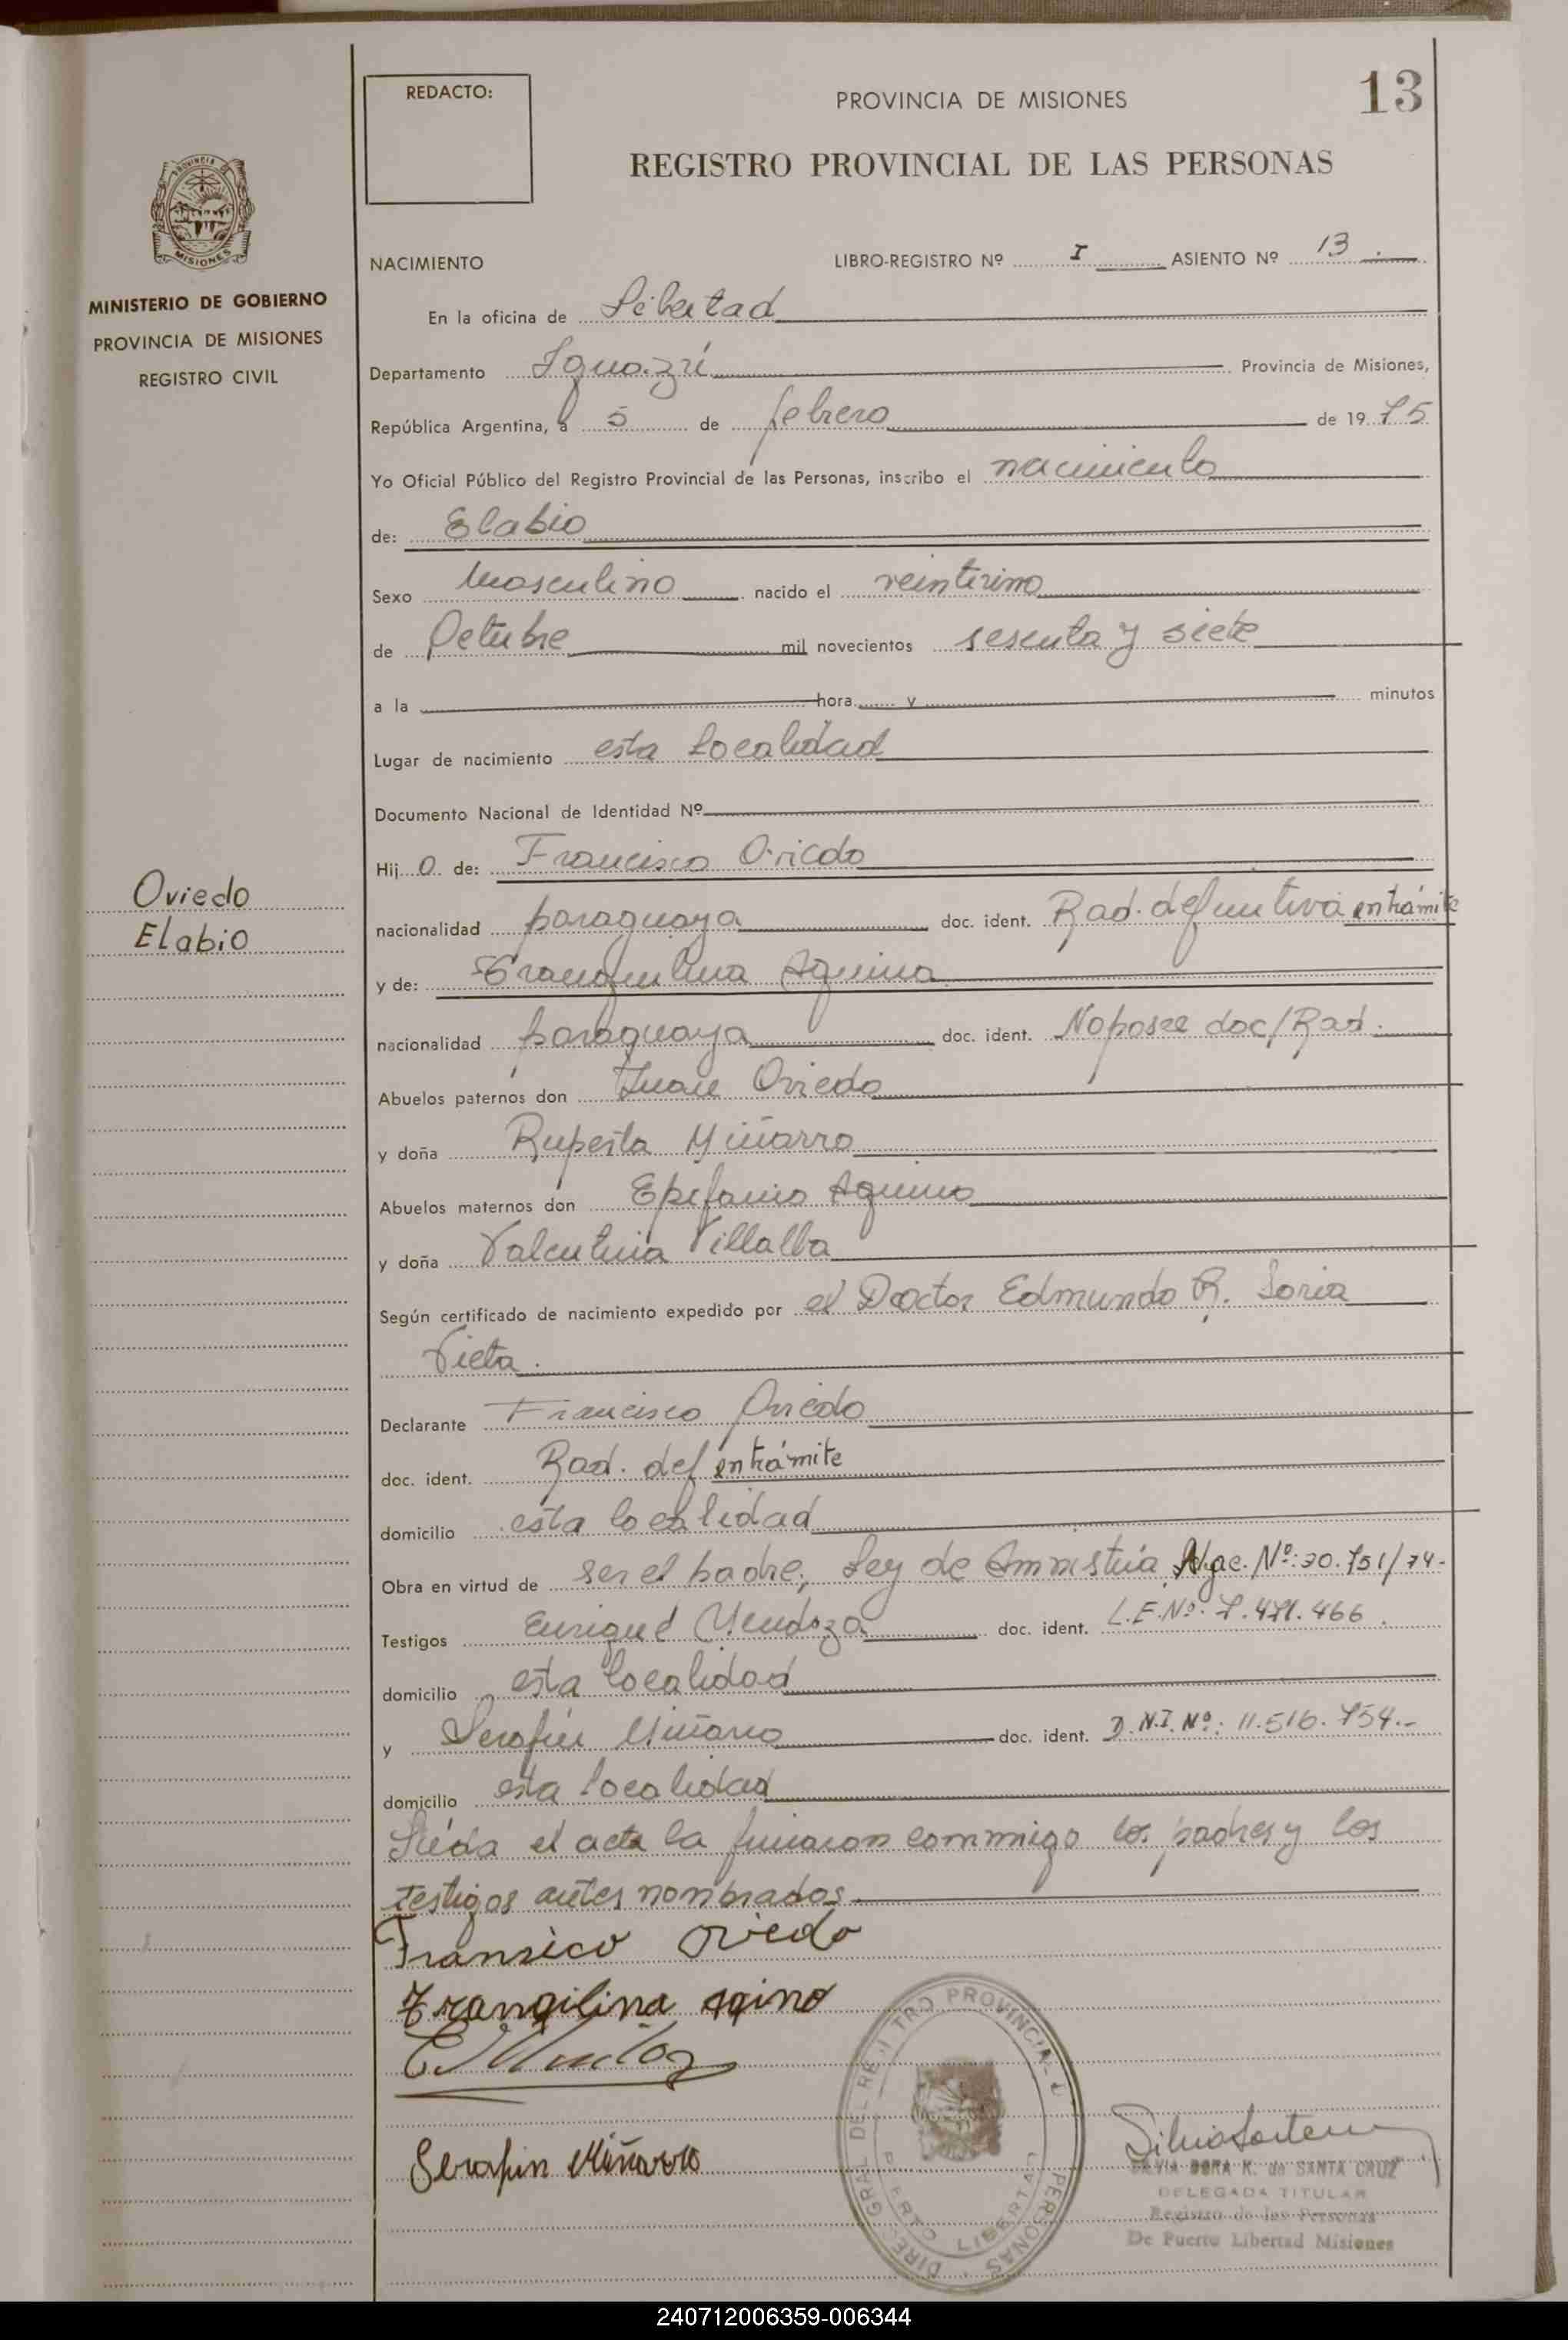 REDACTO:
PROVINCIA DE MISIONES
13
REGISTRO PROVINCIAL DE LAS PERSONAS
MISIONES
MINISTERIO DE GOBIERNO
PROVINCIA DE MISIONES
REGISTRO CIVIL
NACIMIENTO LIBRO-REGISTRO Nº I ASIENTO Nº 13
En la oficina de Libertad
Departamento Iguazú Provincia de Misiones,
República Argentina, a 5 de febrero de 1975
Yo Oficial Público del Registro Provincial de las Personas, inscribo el nacimiento
de: Elabio
Sexo Masculino nacido el veintiuno
de Octubre mil novecientos sesenta y siete
a la hora y minutos
Lugar de nacimiento esta Localidad
Documento Nacional de Identidad Nº
Hijo de: Francisco Oviedo
Oviedo
Elabio
nacionalidad paraguaya doc. ident. Rad. definitiva en trámite
y de: Tranquilina Aquino
nacionalidad paraguaya doc. ident. No posee doc/Rad.
Abuelos paternos don Juan Oviedo
y doña Ruperta Miñarro
Abuelos maternos don Epifanio Aquino
y doña Valentina Villalba
Según certificado de nacimiento expedido por el Doctor Edmundo R. Soria
Vieta.
Declarante Francisco Oviedo
doc. ident. Rad. def en trámite
domicilio esta localidad
Obra en virtud de ser el padre, Ley de Amnistía Nac. Nº: 20.751/74-
Testigos Enrique Mendoza doc. ident. L.E. Nº: 7.471.466.
domicilio esta localidad
y Serafín Miñarro doc. ident. D.N.I. Nº: 11.516.754.-
domicilio esta localidad
Leída el acta la firmaron conmigo los padres y los
testigos antes nombrados
Fransico Oviedo
Trangilina Aqino
Serafin Miñarro
DIREC GRAL DEL REGISTRO PROVINCIAL PERSONAS
PUERTO LIBERTAD
SILVIA DORA K. de SANTA CRUZ
DELEGADA TITULAR
Registro de las Personas
De Puerto Libertad Misiones
240712006359-006344